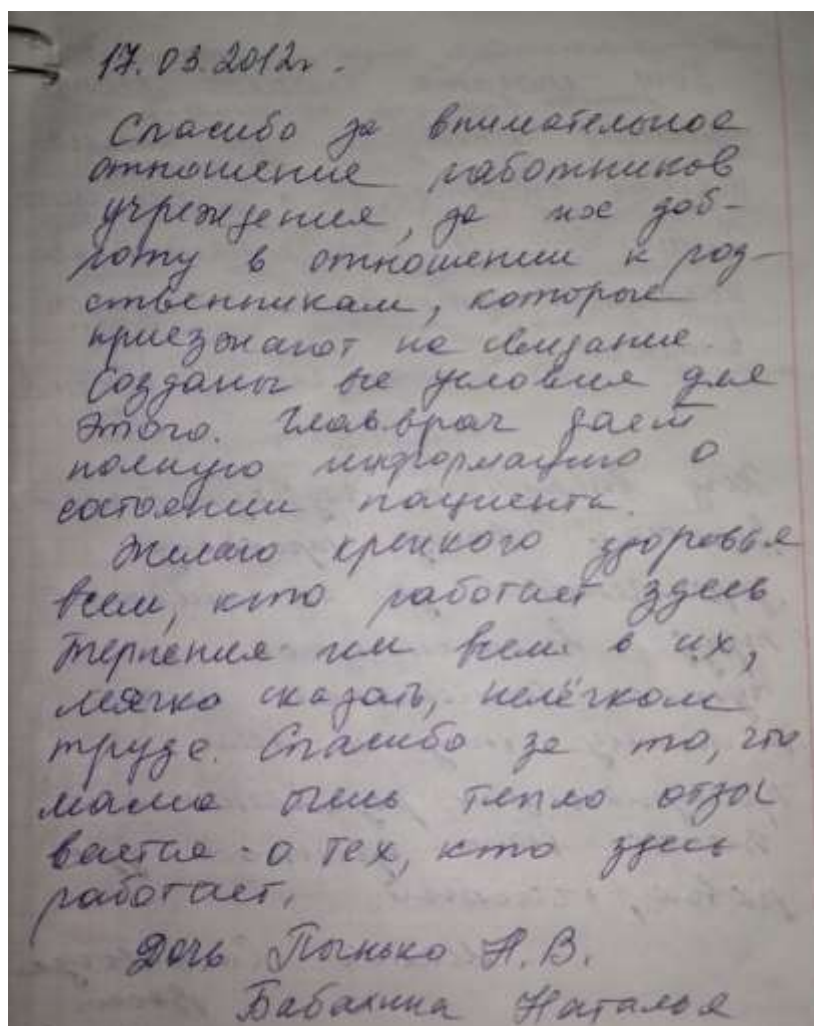 17.03.2012г.
Спасибо за внимательное
отношение работников
учреждения, за их доб-
роту в отношении к род-
ственникам, которые
приезжают на свидание.
Созданы все условия для
этого. Главврач даёт
полную информацию о
состоянии пациента.
Желаю крепкого здоровья
всем, кто работает здесь
терпения им всем в их,
мягко сказать, нелёгком
труде. Спасибо за то, что
мама очень тепло отзы
вается о тех, кто здесь
работает.
Дочь Пынько Н.В.
Наталья